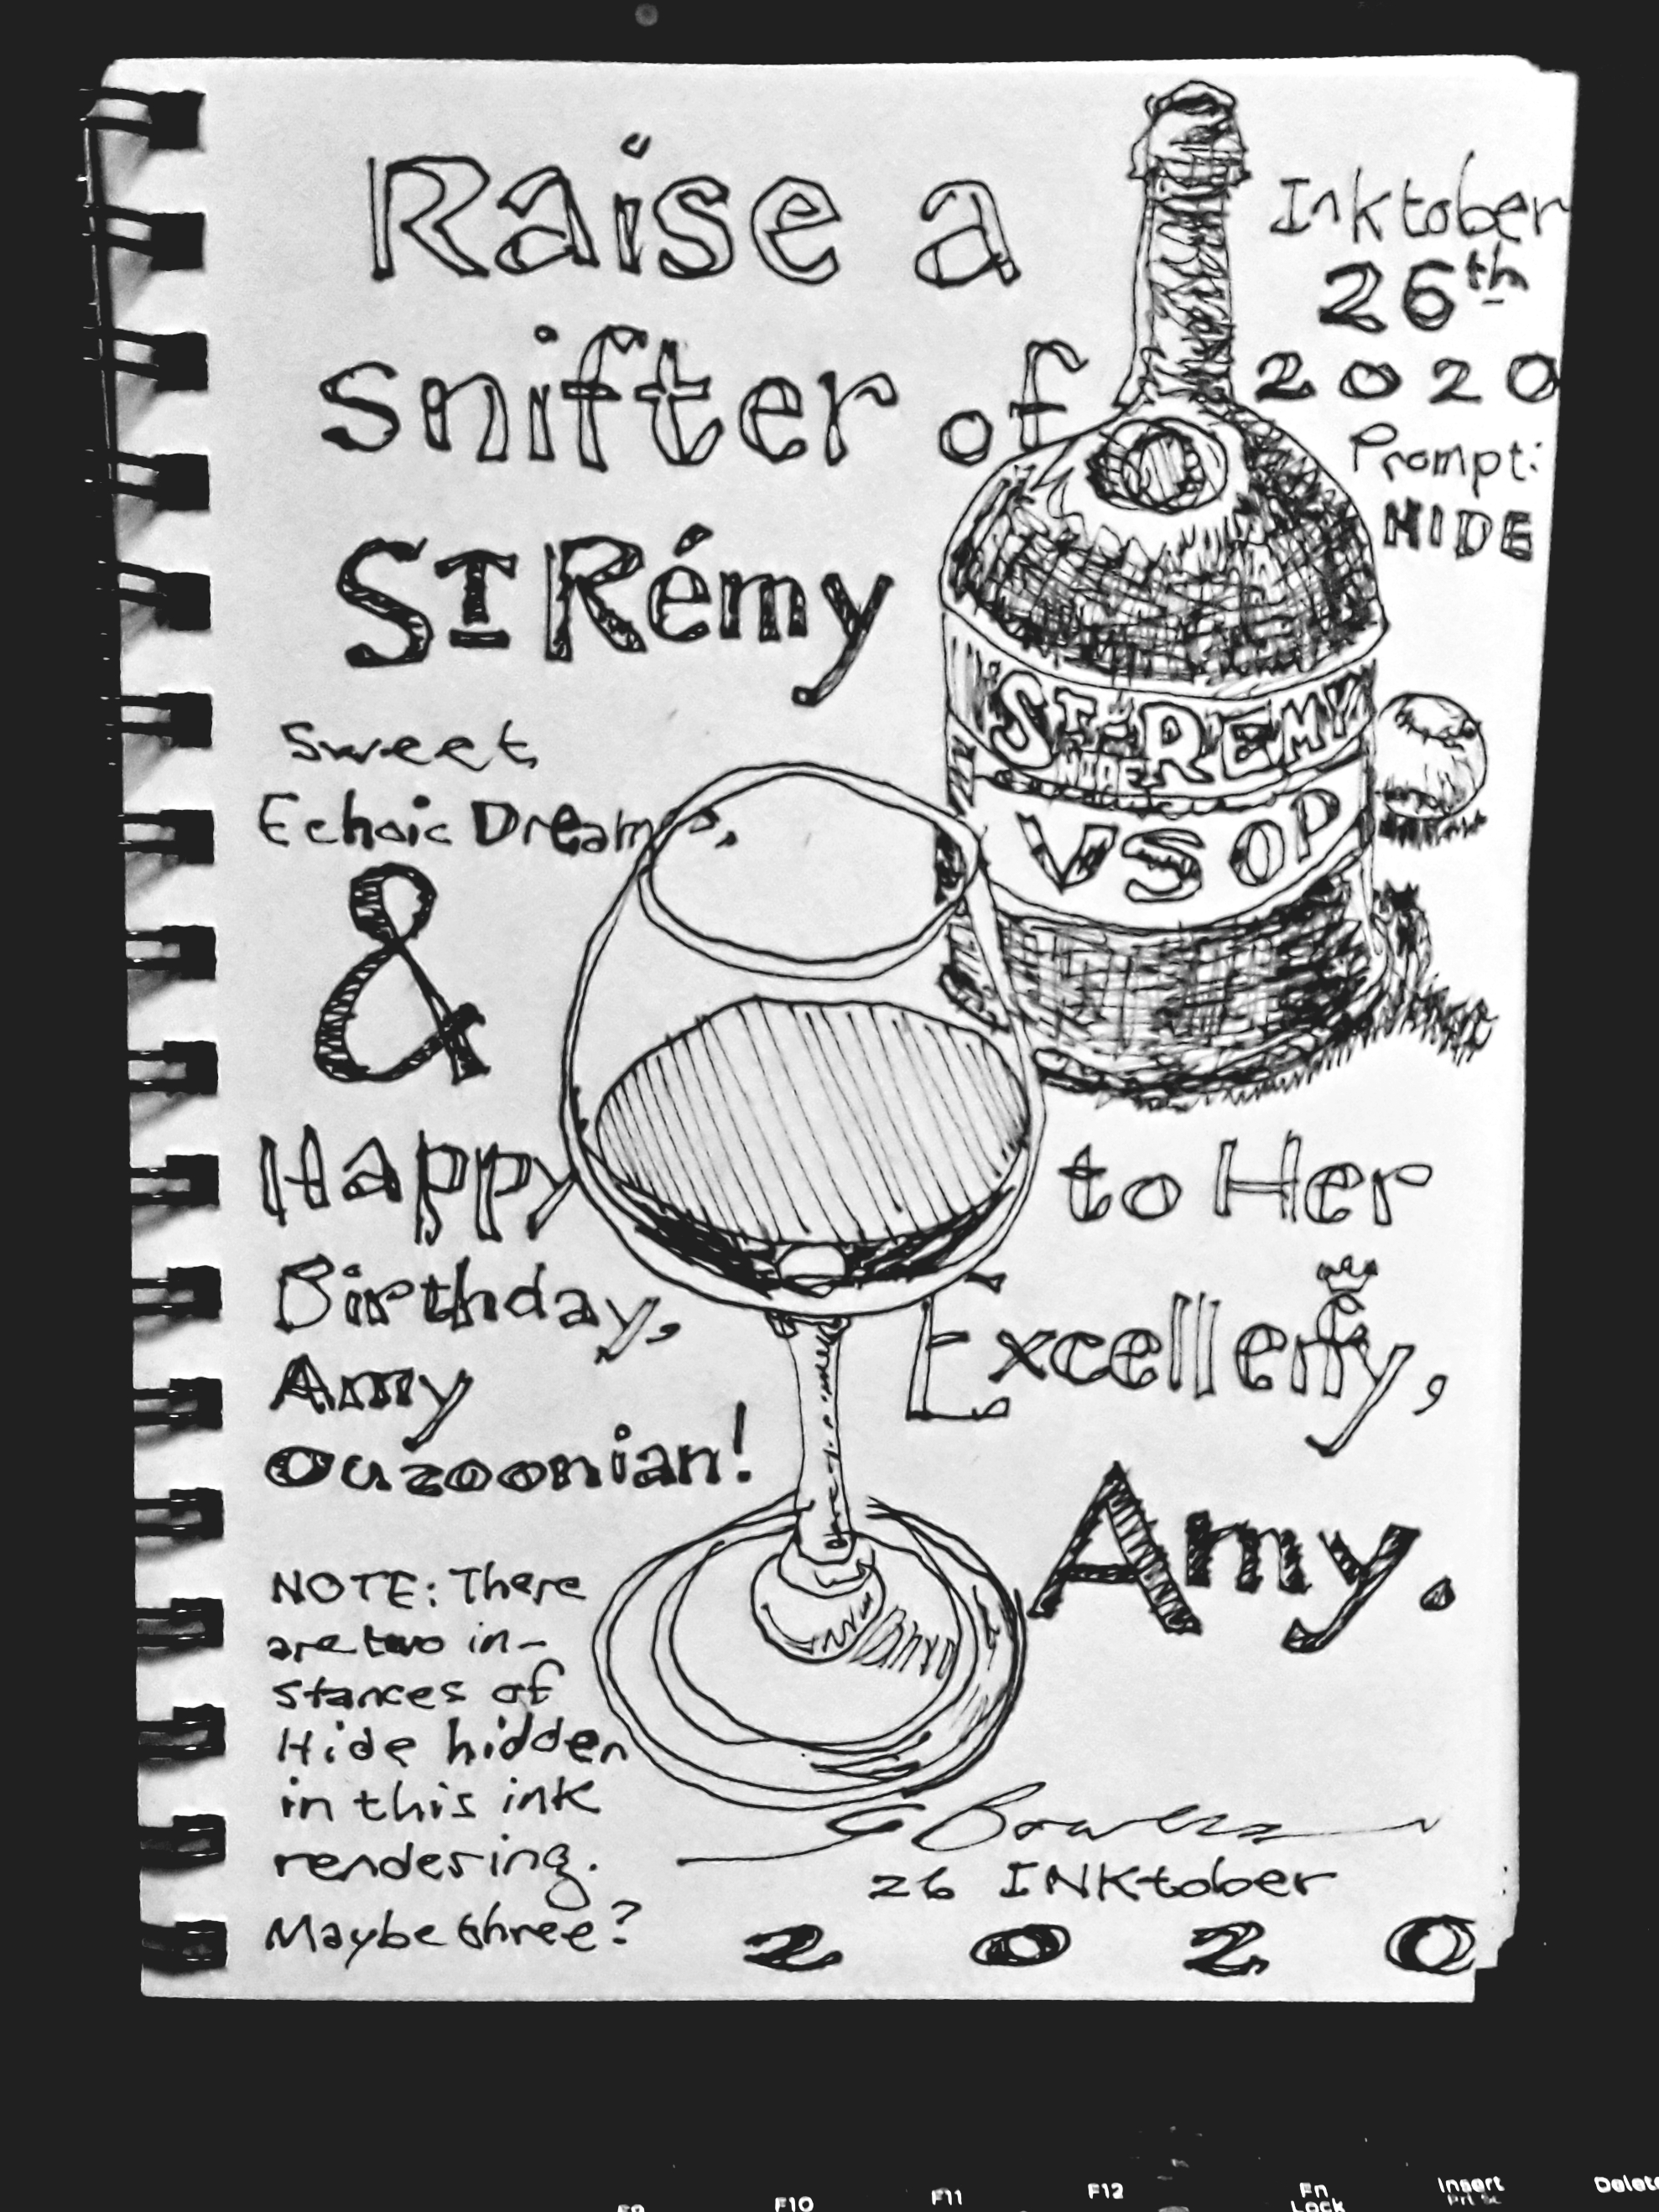 Raise a
snifter of
ST Rémy
Inktober
26th
2020
Prompt:
HIDE
ST-REMY
HIDE
VSOP
Sweet
Echoic Dreams,
&
Happy
Birthday,
Amy
Ouzoonian!
to Her
Excellency,
Amy.
NOTE: There
are two in-
stances of
Hide hidden
in this ink
rendering.
Maybe three?
G Bowers
26 INKtober
2020
F9 F10 F11 F12 Fn Lock Insert Prt Sc Delete